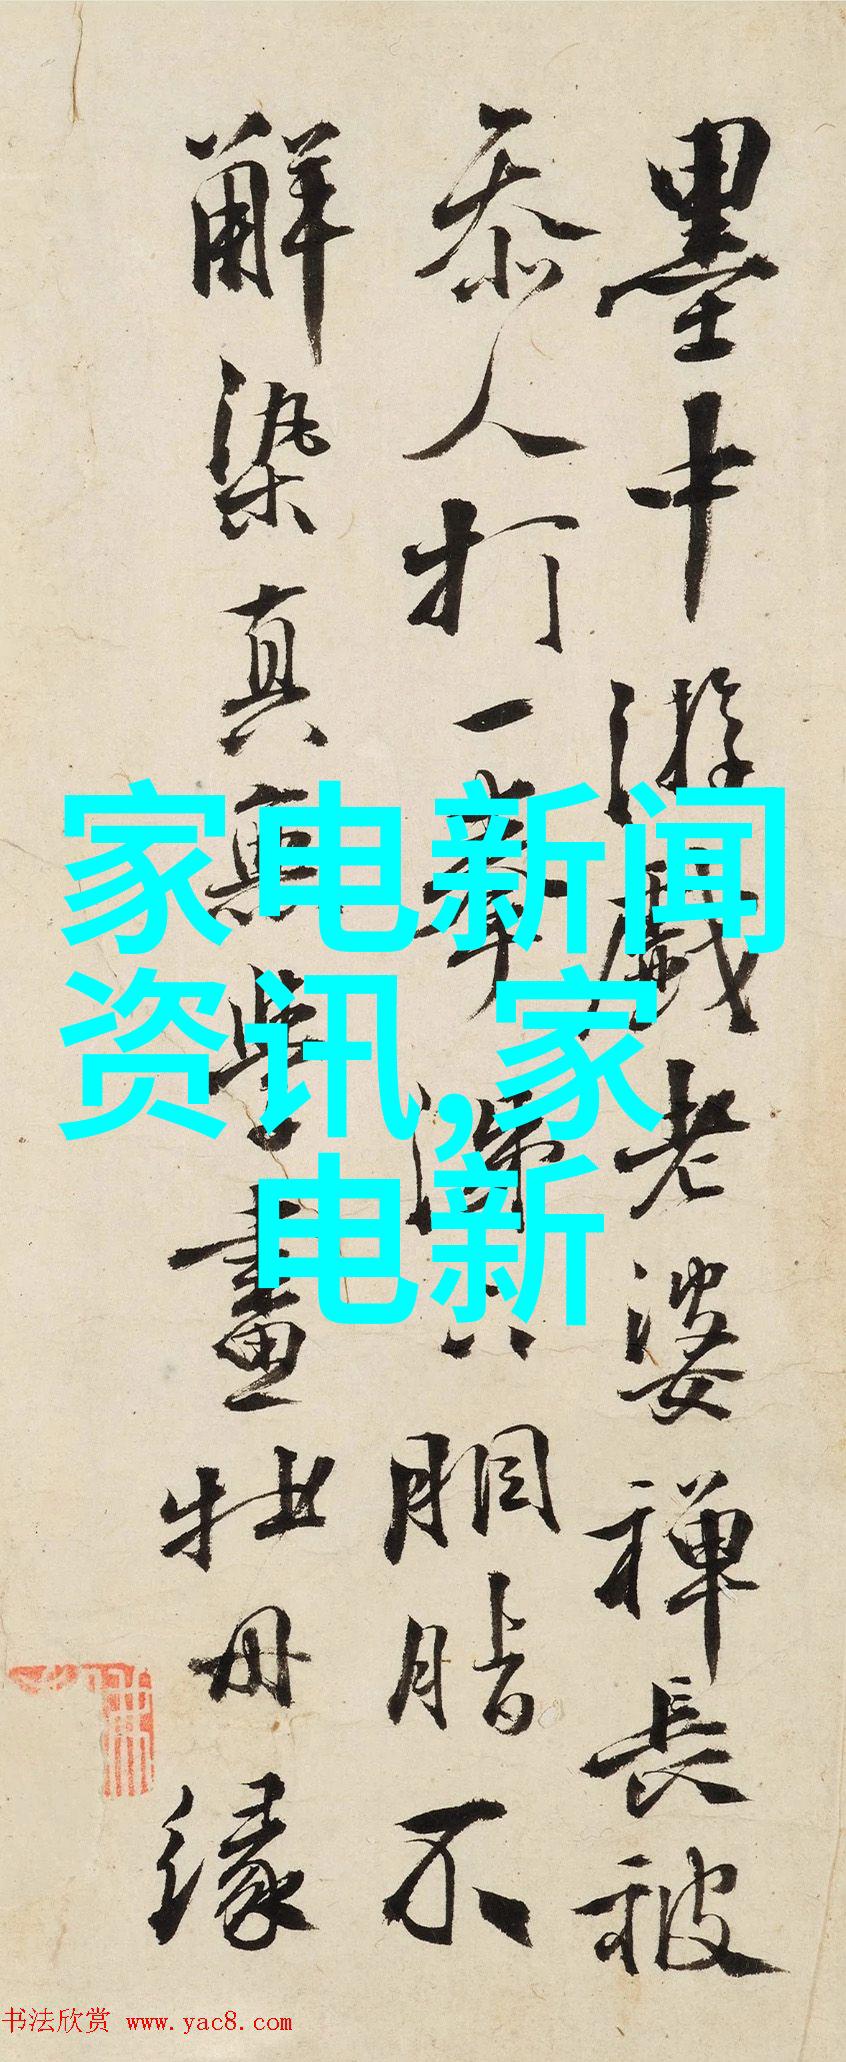 墨中游戲老婆禅長被
参人打一拳胭脂不
解染真無學畫牡丹緣
家电新闻
资讯,家
电新
书法欣赏 www.yac8.com